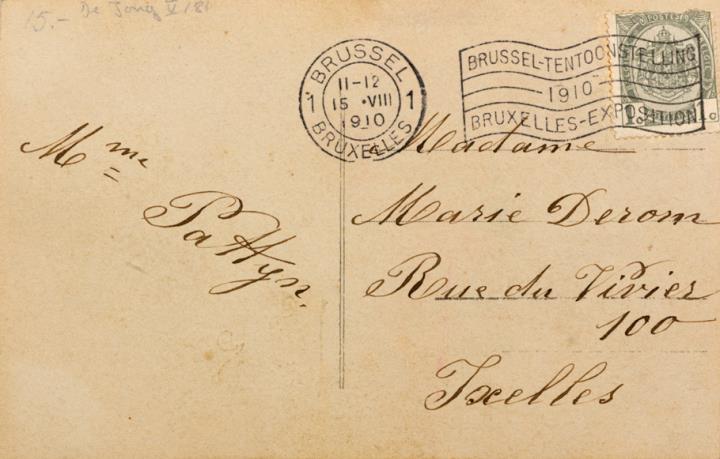 15.- De Jong
BRUSSEL
11-12
1 15 ·VIII 1
1910
BRUXELLES
BRUSSEL-TENTOONSTELLING
1910
BRUXELLES-EXPOSITION
POSTES
1 1
Mme
Pattyn.
Madame
Marie Derom
Rue du Vivier
100
Ixelles